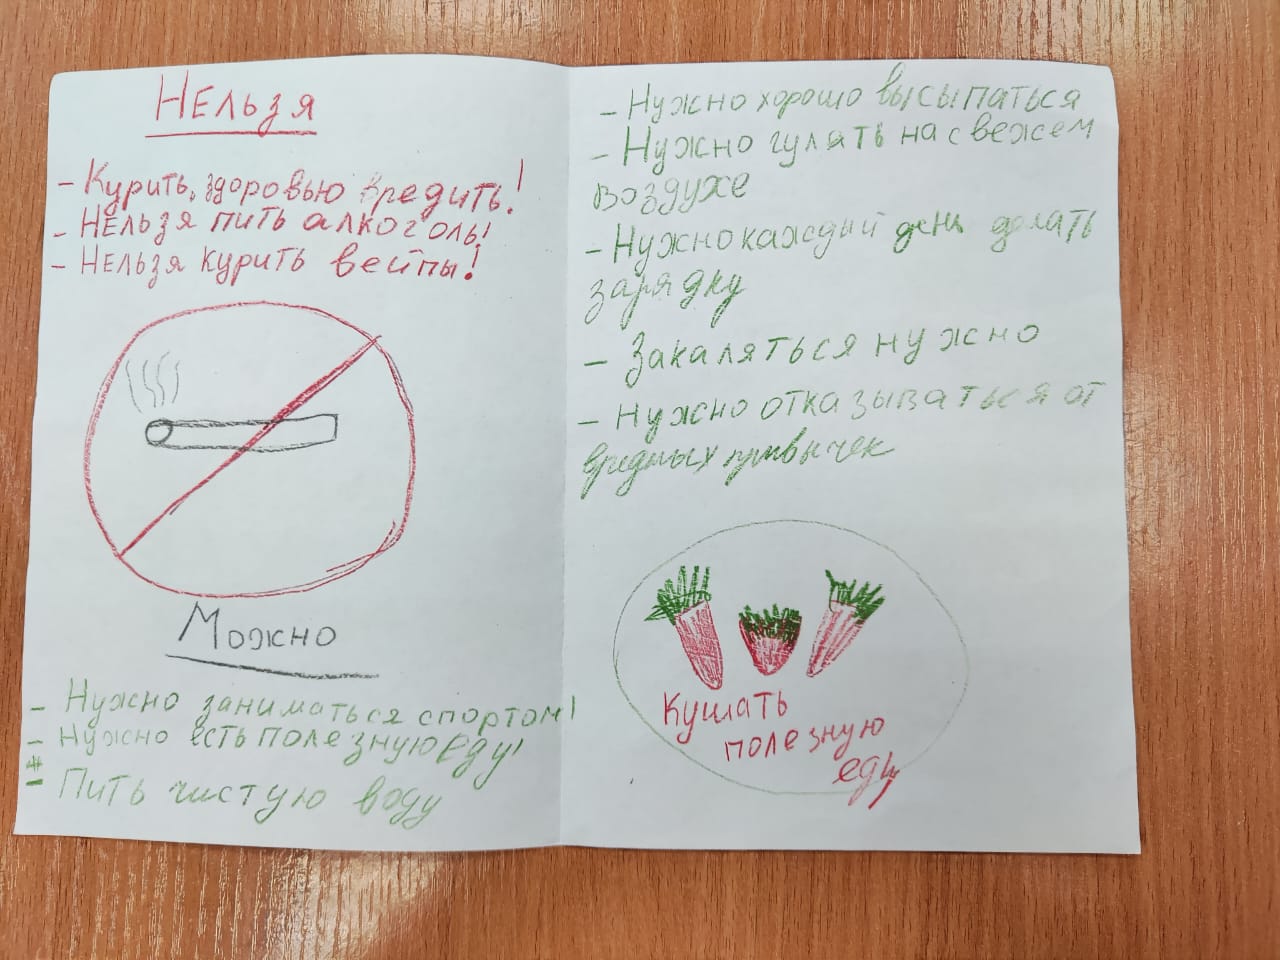 Нельзя
- Курить, здоровью вредить!
- Нельзя пить алкоголь!
- Нельзя курить вейпы!
Можно
- Нужно заниматься спортом!
- Нужно есть полезную еду!
- Пить чистую воду
- Нужно хорошо высыпаться
- Нужно гулять на свежем
воздухе
- Нужно каждый день делать
зарядку
- Закаляться нужно
- Нужно отказываться от
вредных привычек
Кушать
полезную
еду